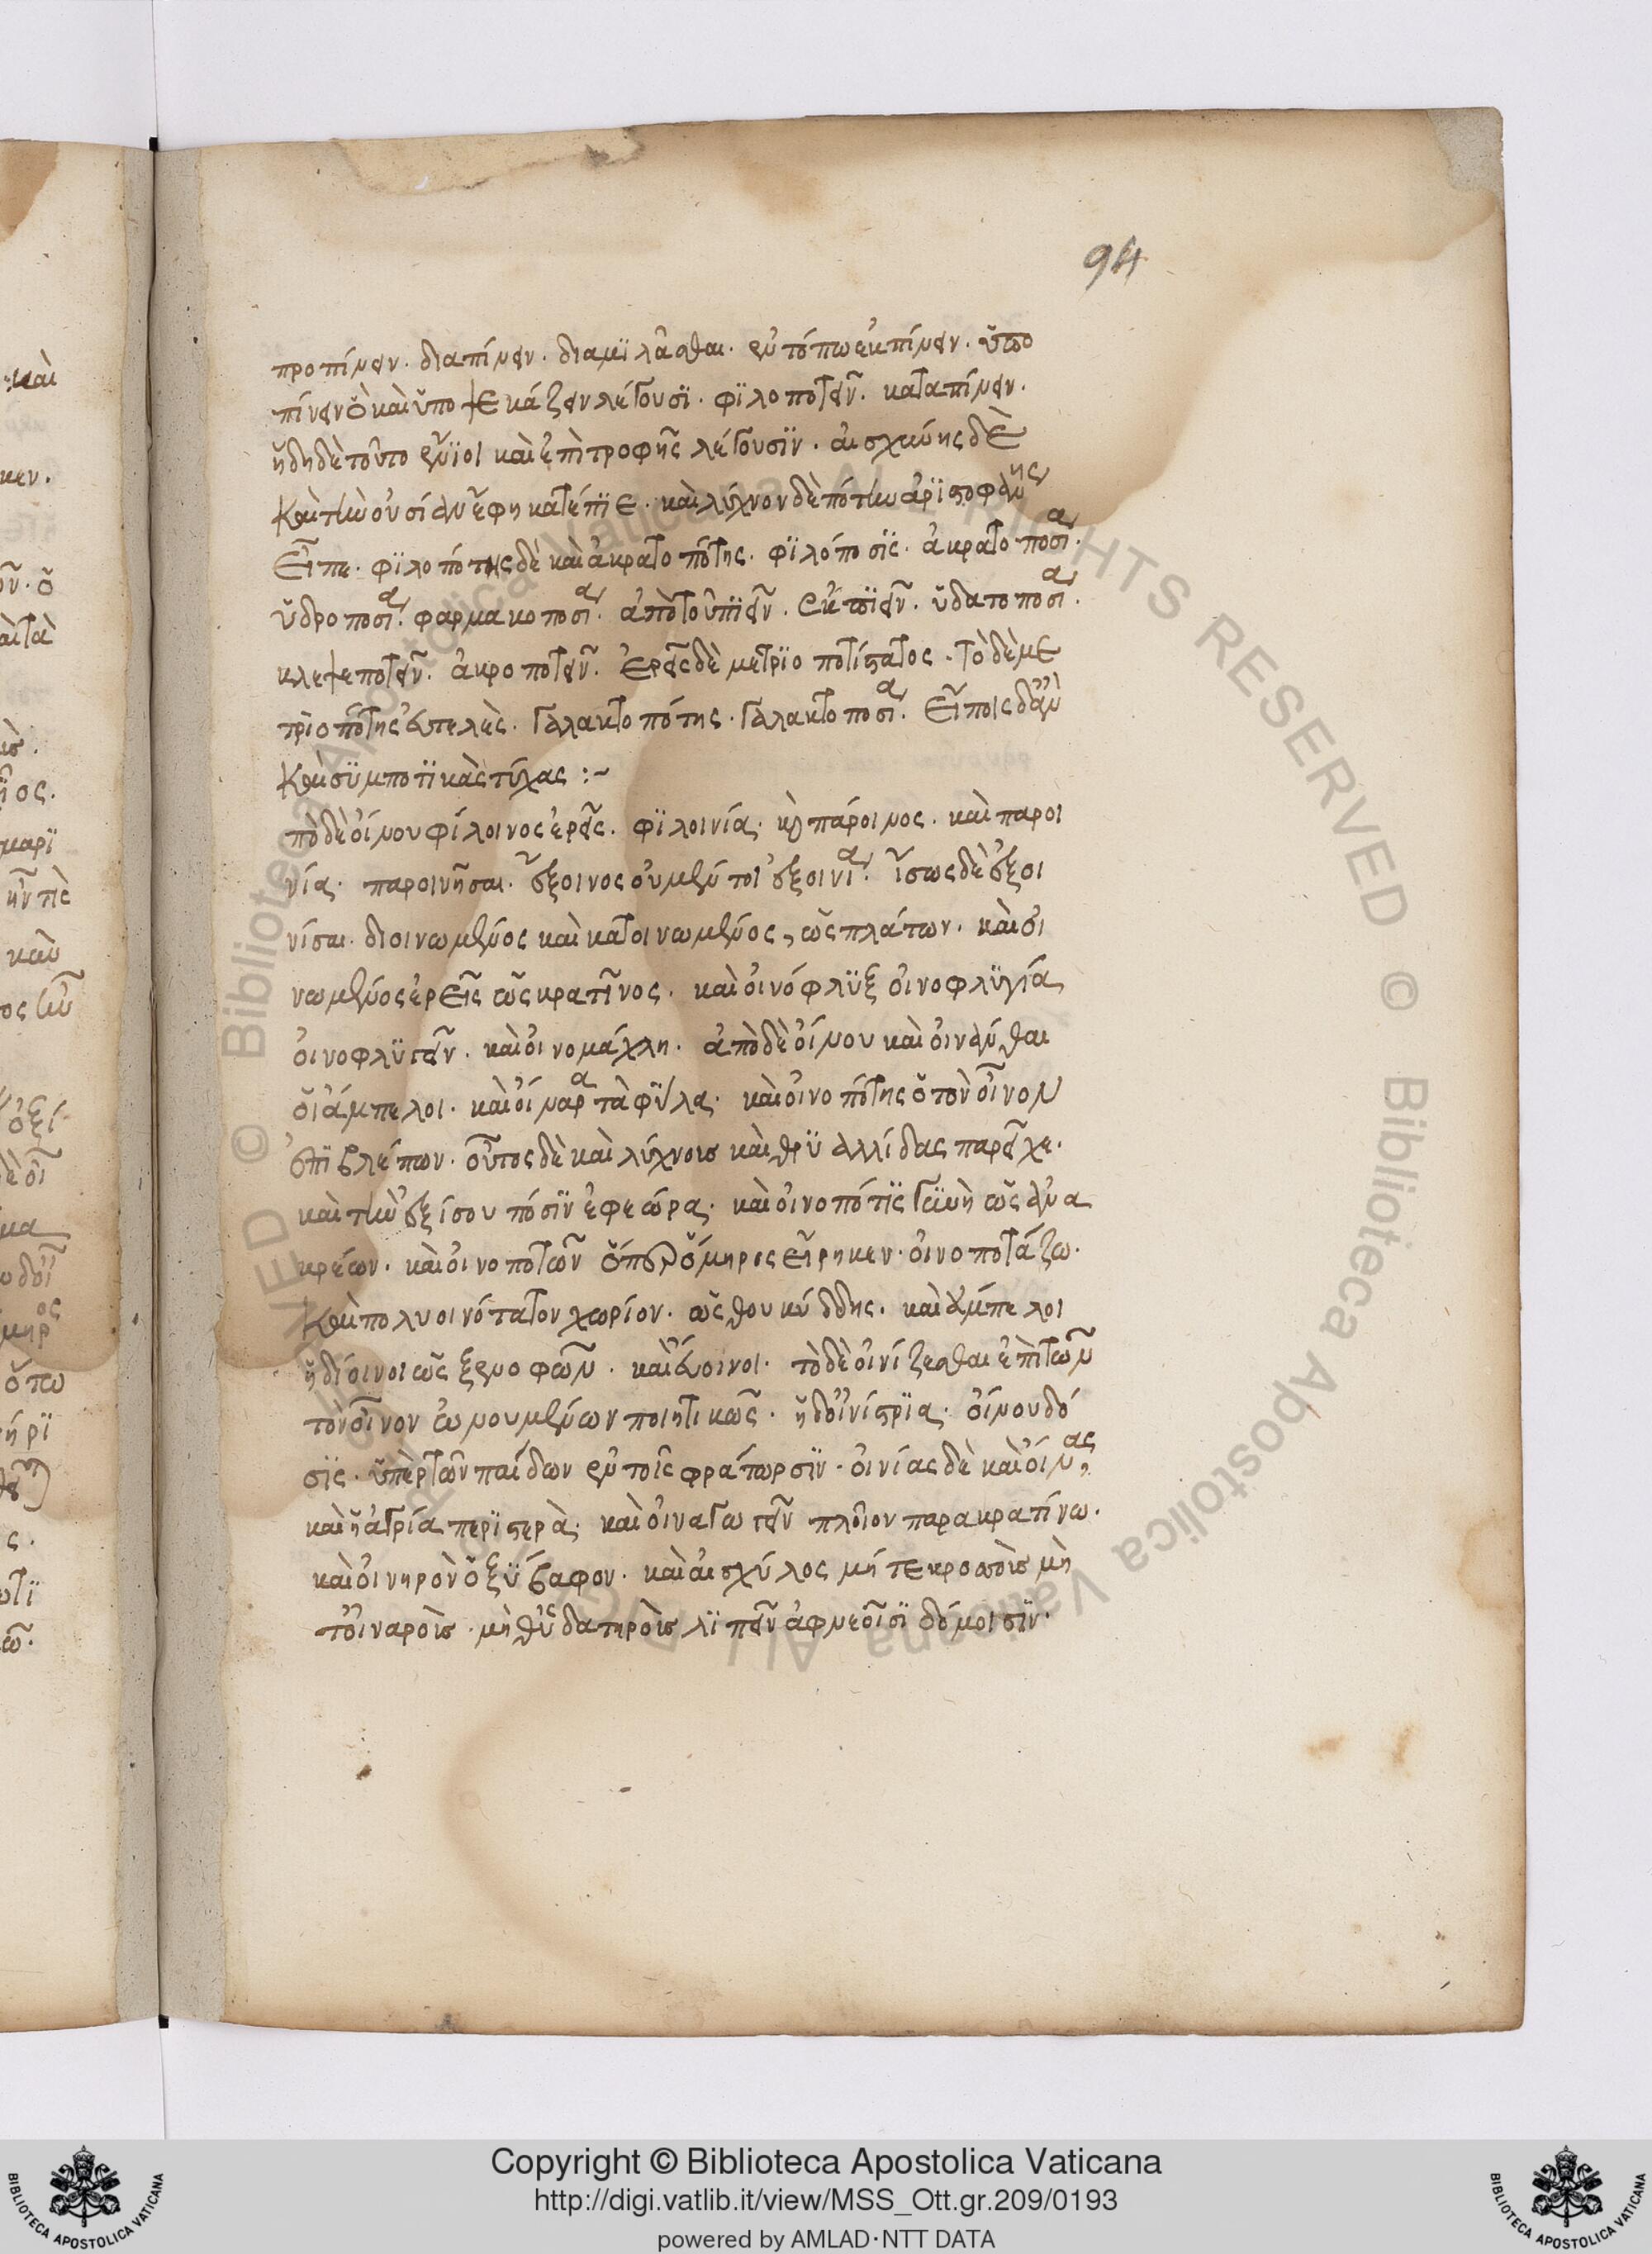 94
προπίνειν. διαπίνειν. διαμϊλᾶσθαι. ἐν τόπω ἐκπίνειν. ὕπο
πίνειν ὃ καὶ ὕποψεκάζειν λέγουσϊ. φϊλοποτεῖν. καταπίνειν.
ἤδη δὲ τοῦτο ἔνϊοι καὶ ἐπὶ τροφῆς λέγουσϊν. αἰσχίνης δὲ
καὶ τὴν οὐσίαν ἔφη κατέπϊε. καὶ λύχνον δὲ πότην ἀρϊστοφάνης
εἶπε. φϊλοπότης δὲ καὶ ἀκρατοπότης. φϊλόποσϊς. ἀκρατοποσία.
ὕδροποσία. φαρμακοποσία. ἀπὸ τοῦ πϊεῖν. ἐκπϊεῖν. ὕδατοποσία.
κλεψεποτεῖν. ἀκροποτεῖν. ἐρεῖς δὲ μετρϊοποτίστατος. τὸ δὲ με
τριοπότης εὐτελὲς. γαλακτοπότης. γαλακτοποσία. εἴποις δἂν
καὶ σϋμποτϊκὰς τύχας :~
πὸ δὲ οἴνου φίλοινος ἐρεῖς. φϊλοινία. καὶ πάροινος. καὶ παροι
νία. παροινῆσαι. ἔξοινος οὐ μέντοι ἐξοινία. ἴσως δὲ ἐξοι
νίσαι. διοινωμένος καὶ κατοινωμένος, ὡς πλάτων. καὶ οἰ
νωμένος ἐρεῖς ὡς κρατῖνος. καὶ οἰνόφλϋξ οἰνοφλϋγία
οἰνοφλϋγεῖν. καὶ οἰνομάχλη. ἀπὸ δὲ οἴνου καὶ οἰνάνθαι
οἱ ἄμπελοι. καὶ οἴναρα τὰ φύλλα. καὶ οἰνοπότης ὁ τὸν οἶνον
ἐπϊβλέπων. οὗτος δὲ καὶ λύχνοις καὶ θρϋαλλίδας παρεῖχε.
καὶ τὴν ἐξίσου πόσϊν ἐφεώρα. καὶ οἰνοπότϊς γϋνὴ ὡς ἀνα
κρέων. καὶ οἰνοποτῶν ὅπερ ὅμηρος εἴρηκεν. οἰνοποτάζω.
καὶ πολυοινότατον χωρίον. ὡς θουκυδίδης. καὶ ἄμπελοι
ἡδύοινοι ὡς ξενοφῶν. καὶ εὔοινοι. τὸ δὲ οἰνίζεσθαι ἐπὶ τῶν
τὸν οἶνον ὠνουμένων ποιητικῶς. ἡ δ οἰνίστρϊα. οἴνου δό
σϊς. ὑπὲρ τῶν παίδων ἐν τοῖς φράτωρσϊν. οἰνίας δὲ καὶ οἰνας,
καὶ ἡ ἀγρία περϊστερὰ. καὶ οἰναγωγεῖν πλοῖον παρα κρατίνω.
καὶ οἰνηρὸν ὀξϋβαφον. καὶ αἰσχύλος μήτε κροσσοὺς μὴ
τ οἰναροὺς. μὴθ ὑδατηροὺς λϊπεῖν ἀφνεοῖσϊ δόμοισϊν.
Copyright © Biblioteca Apostolica Vaticana
http://digi.vatlib.it/view/MSS_Ott.gr.209/0193
powered by AMLAD·NTT DATA